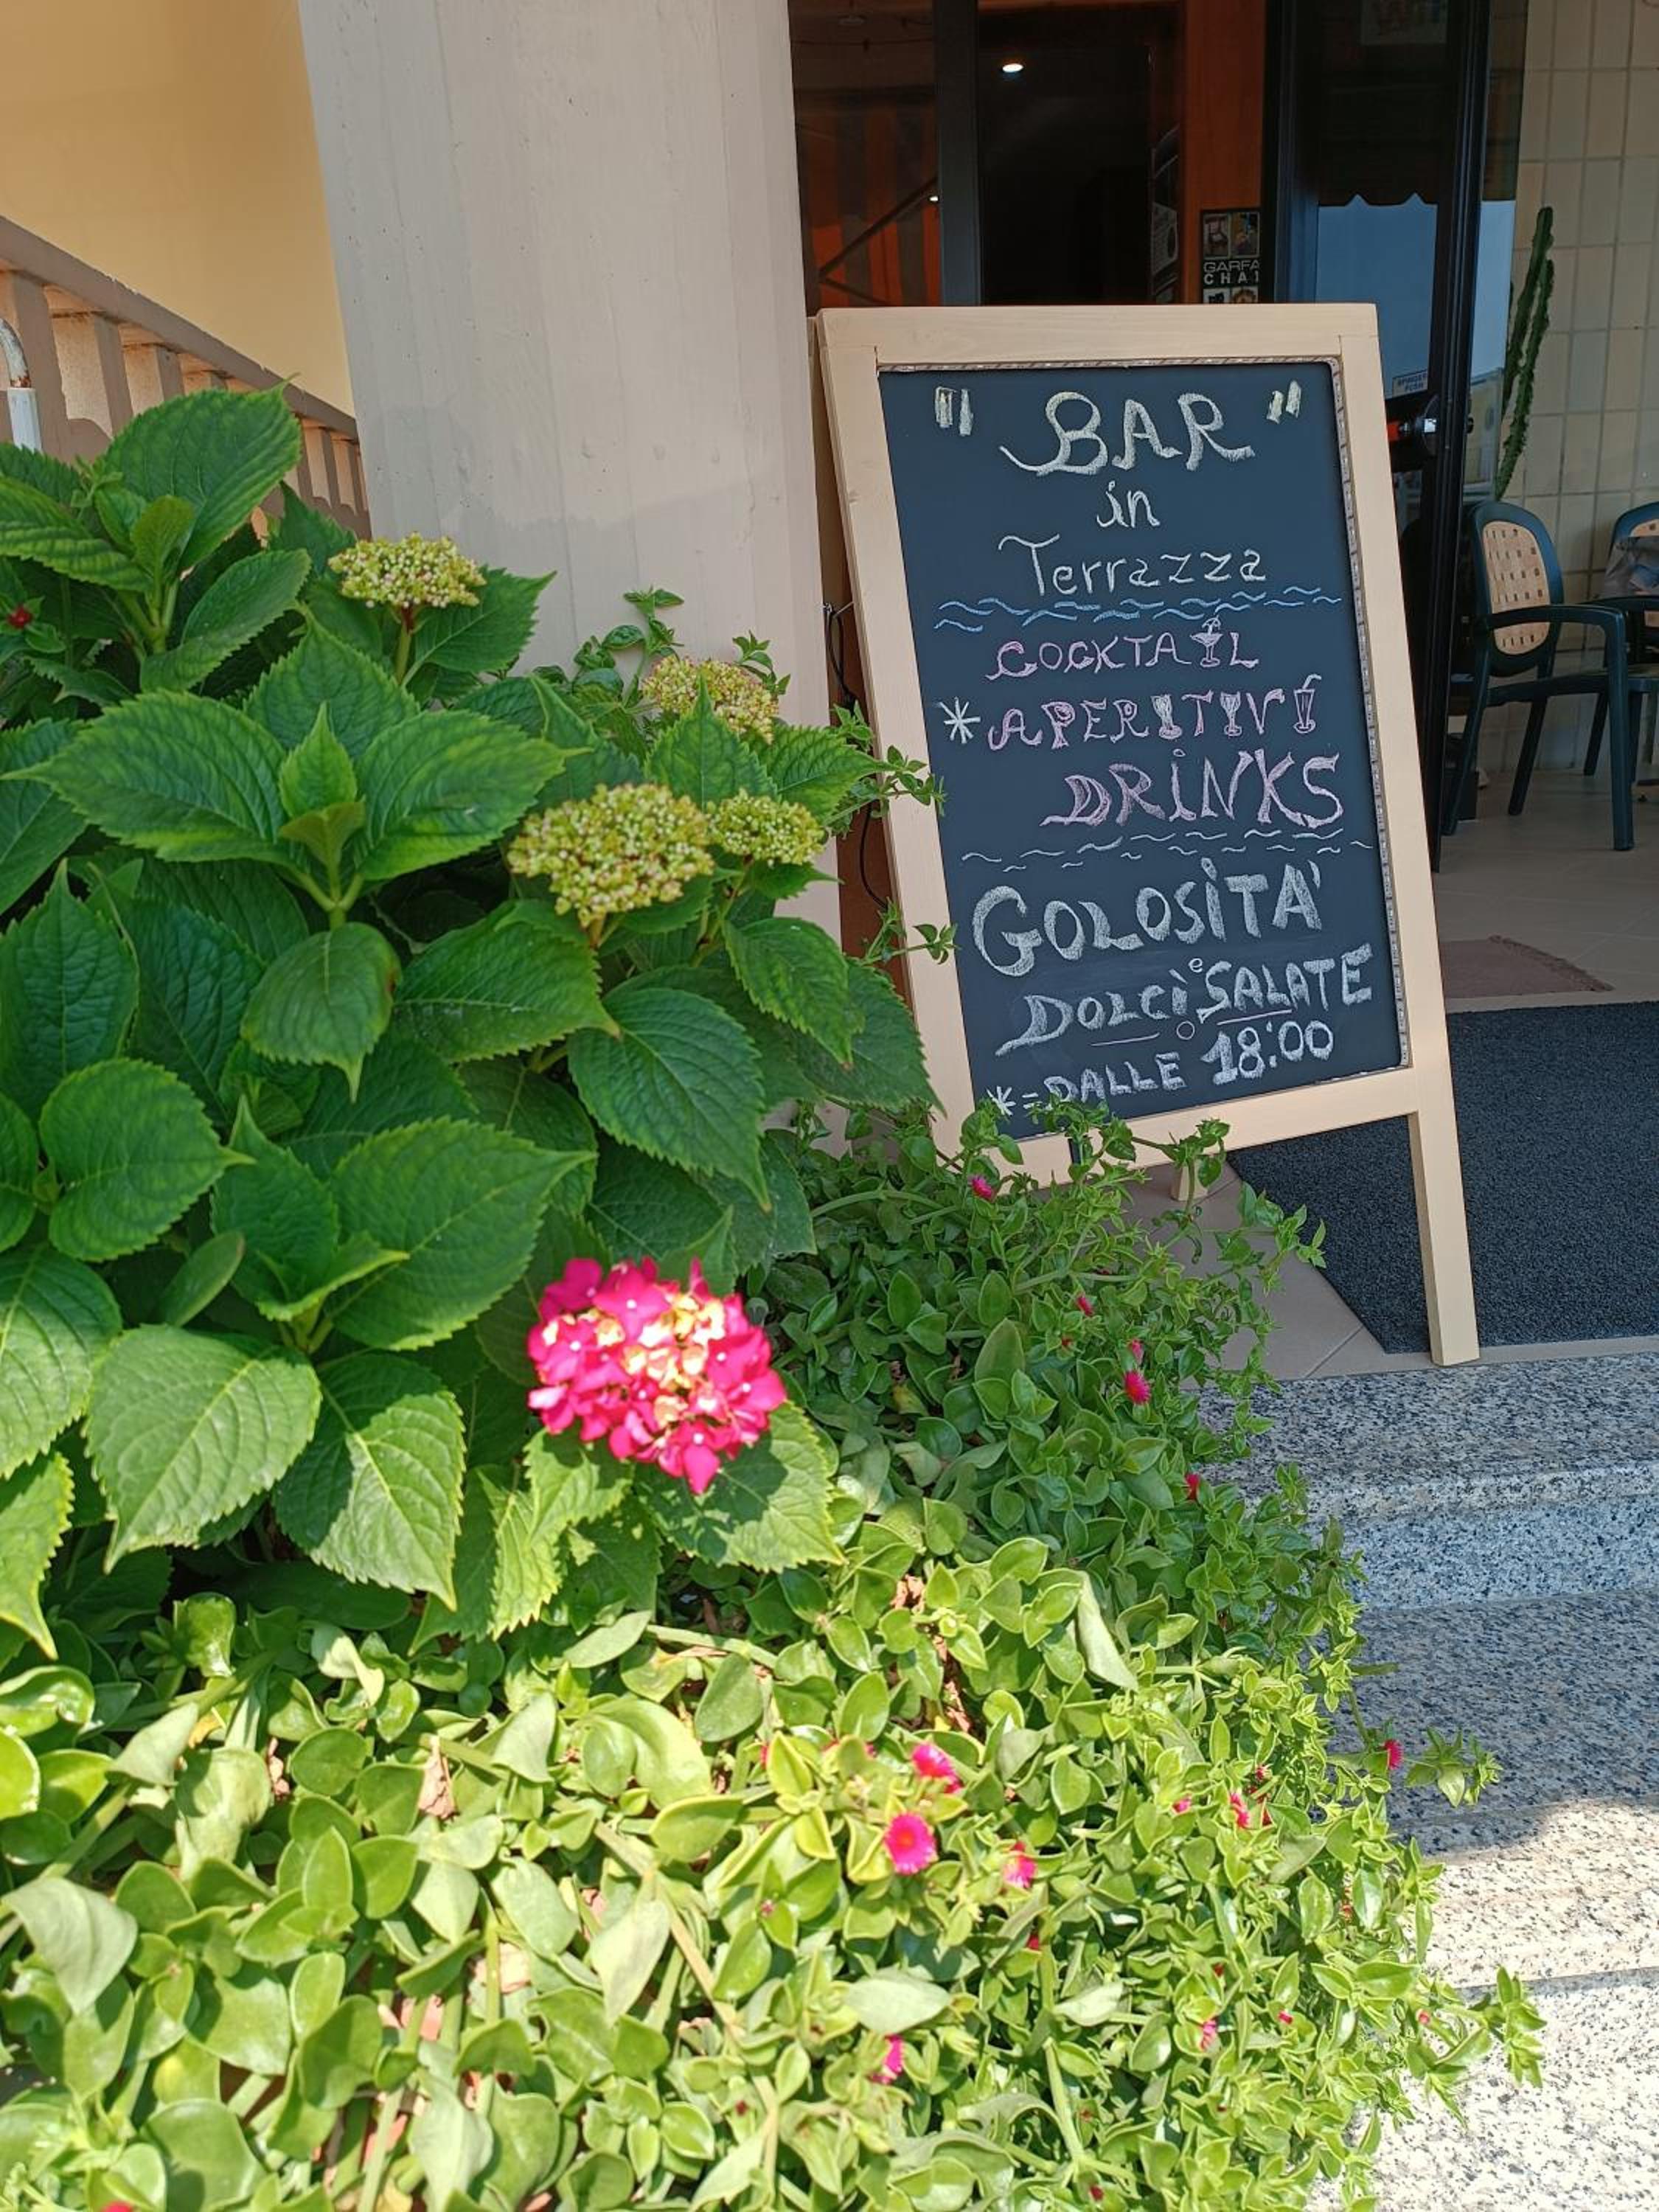 GARFA
CHAI
SPINGERE
PUSH
" BAR "
in
Terrazza
COCKTAIL
*APERITIVI
DRiNKS
GOLOSiTA'
DOLCi e SALATE
*=DALLE 18:00